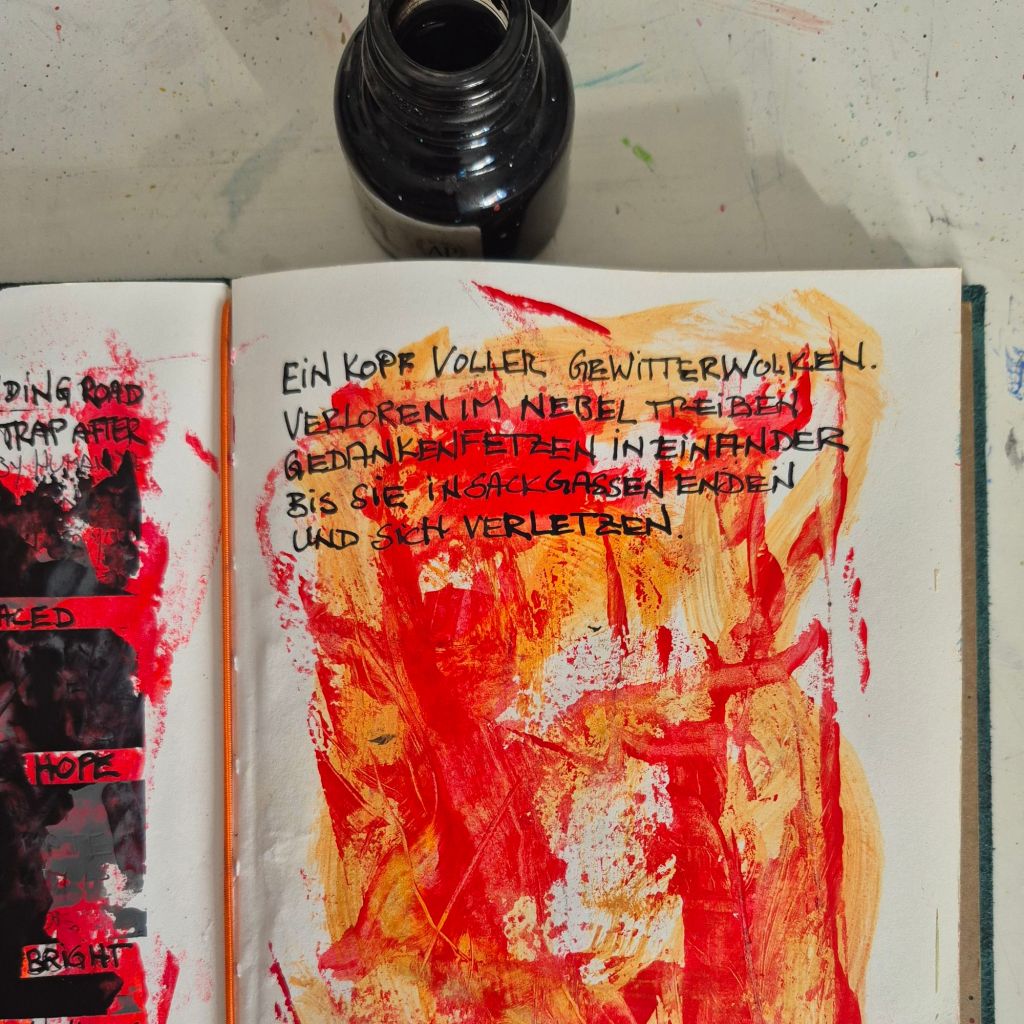 DING ROAD
TRAP AFTER
BY HUMAN
ACED
HOPE
BRIGHT
EIN KOPF VOLLER GEWITTERWOLKEN.
VERLOREN IM NEBEL TREIBEN
GEDANKENFETZEN INEINANDER
BIS SIE IN SACKGASSEN ENDEN
UND SICH VERLETZEN.